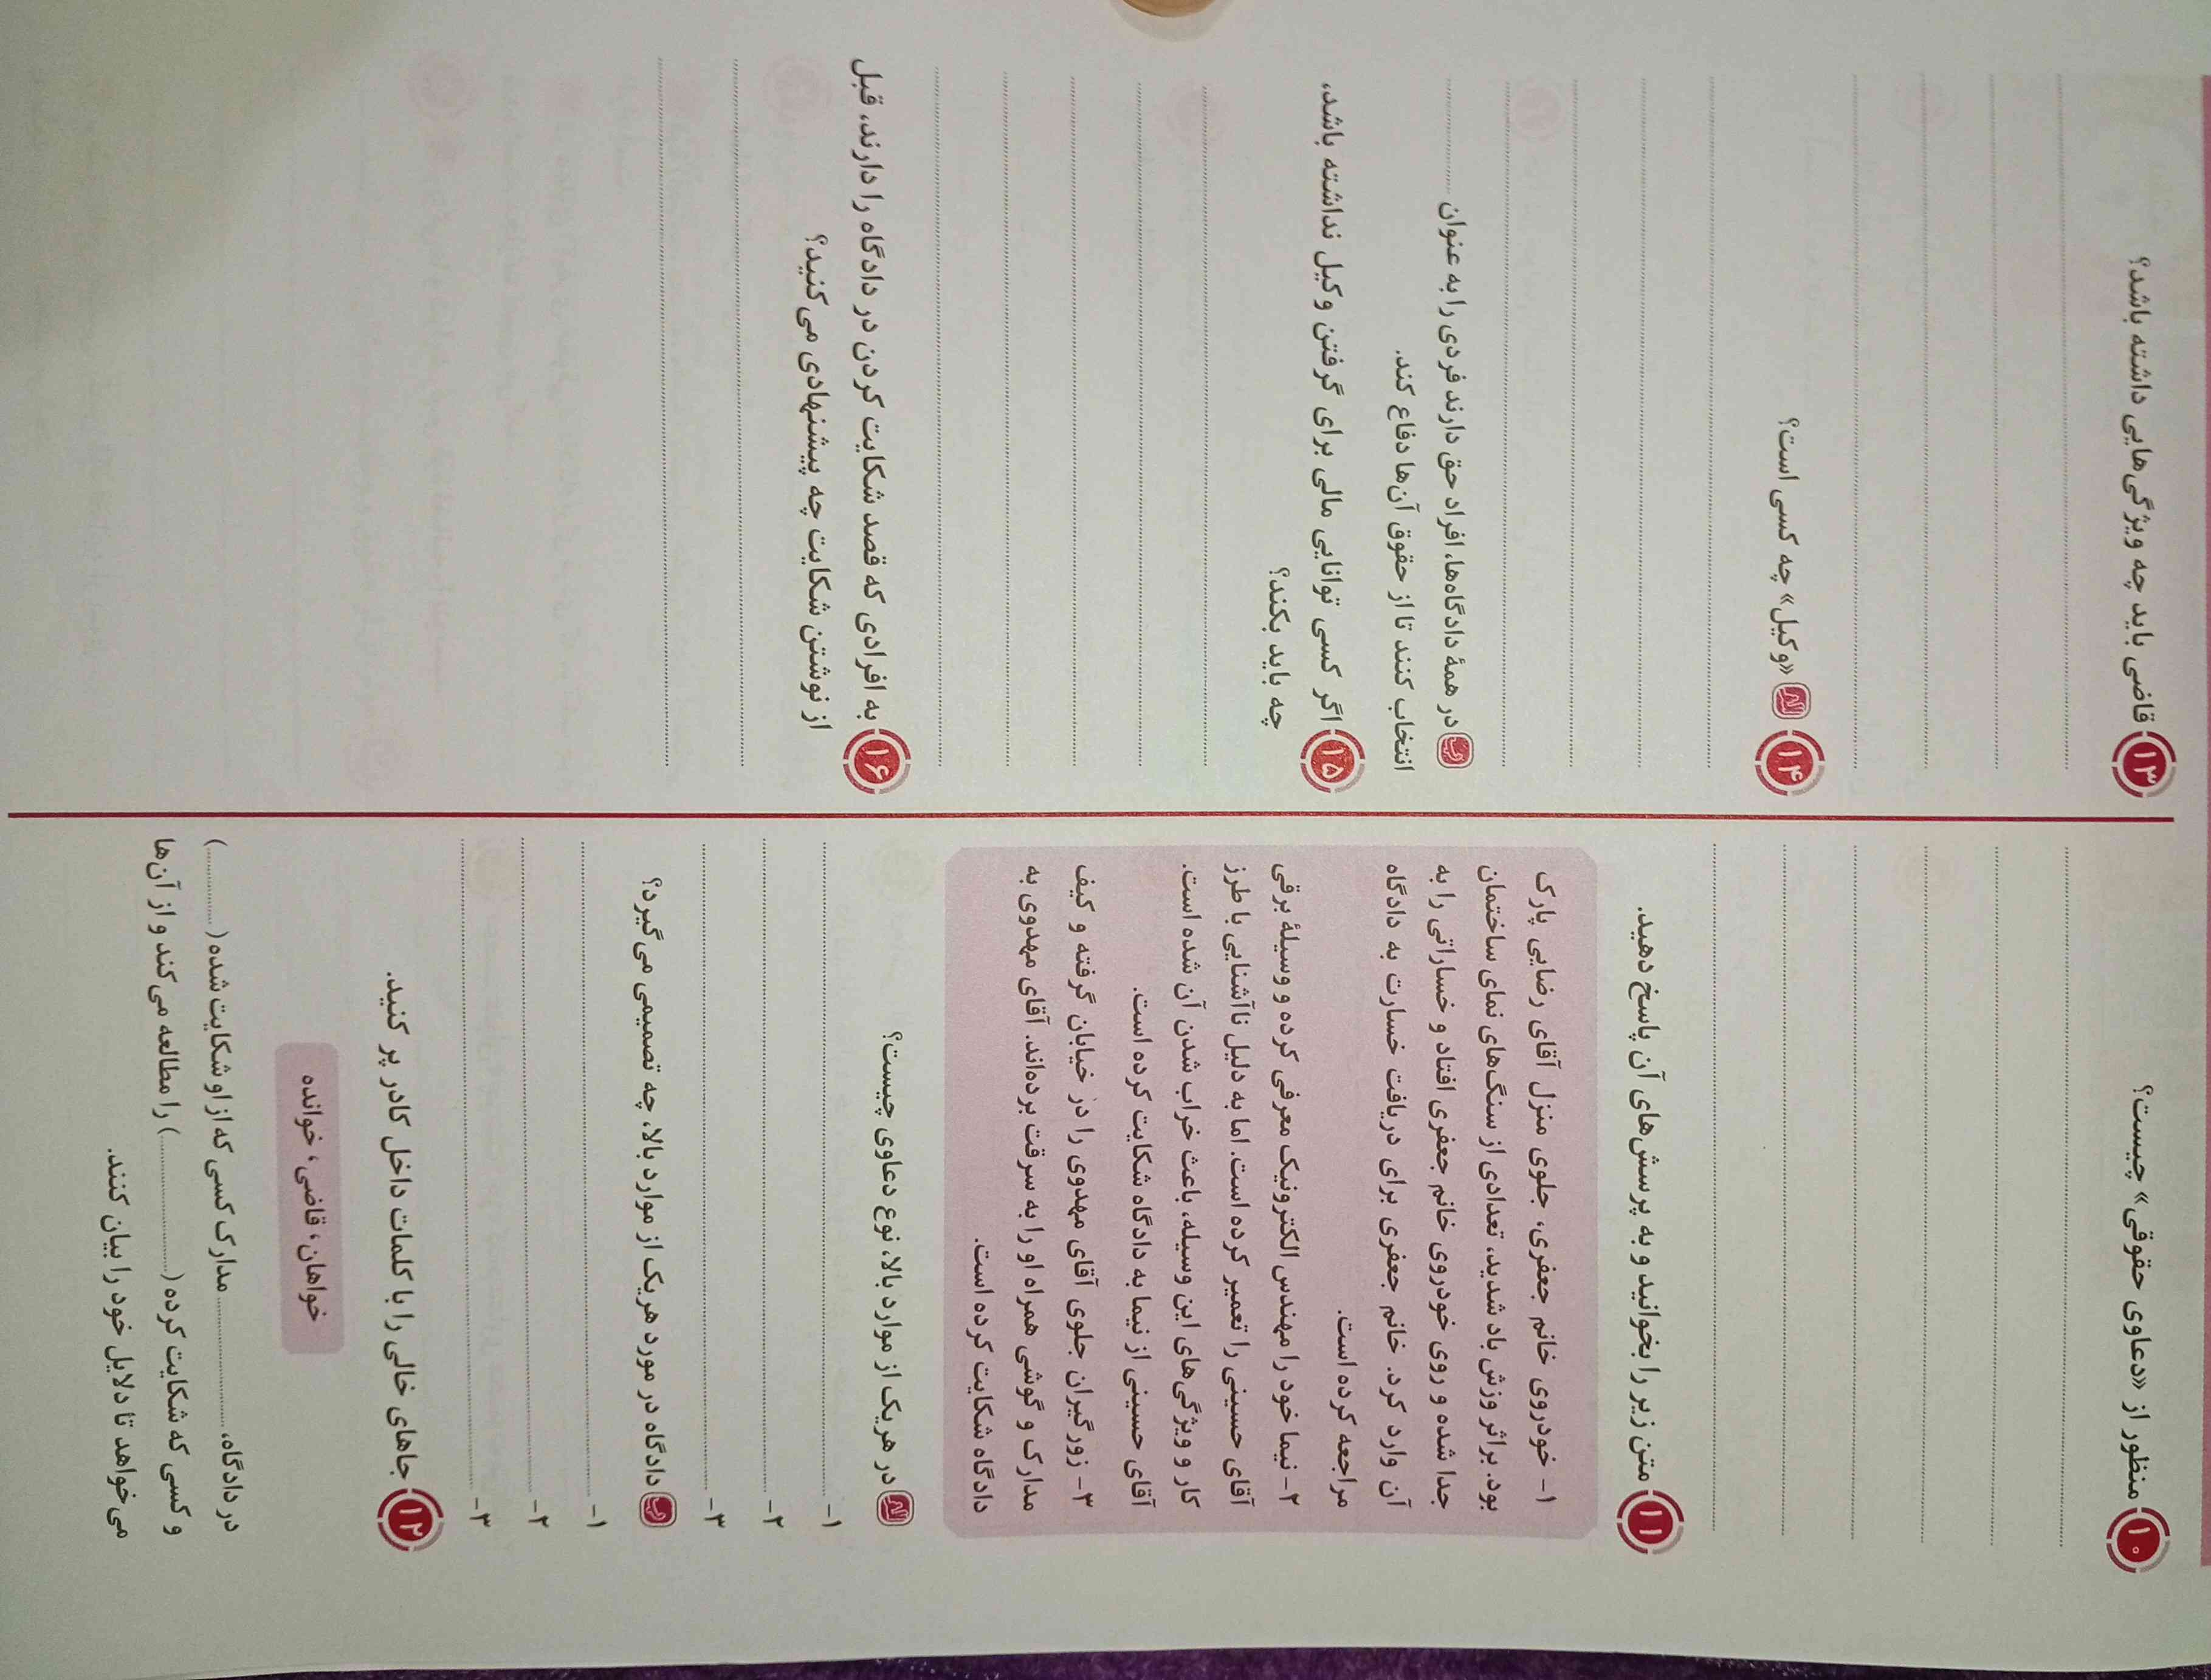 ۱۰ منظور از «دعاوی حقوقی» چیست؟
۱۱ متن زیر را بخوانید و به پرسش‌های آن پاسخ دهید.
۱- خودروی خانم جعفری، جلوی منزل آقای رضایی پارک
بود. براثر وزش باد شدید، تعدادی از سنگ‌های نمای ساختمان
جدا شده و روی خودروی خانم جعفری افتاد و خساراتی را به
آن وارد کرد. خانم جعفری برای دریافت خسارت به دادگاه
مراجعه کرده است.
۲- نیما خود را مهندس الکترونیک معرفی کرده و وسیلهٔ برقی
آقای حسینی را تعمیر کرده است. اما به دلیل ناآشنایی با طرز
کار و ویژگی‌های این وسیله، باعث خراب شدن آن شده است.
آقای حسینی از نیما به دادگاه شکایت کرده است.
۳- زورگیران جلوی آقای مهدوی را در خیابان گرفته و کیف
مدارک و گوشی همراه او را به سرقت برده‌اند. آقای مهدوی به
دادگاه شکایت کرده است.
الف در هریک از موارد بالا، نوع دعاوی چیست؟
۱-
۲-
۳-
ب دادگاه در مورد هریک از موارد بالا، چه تصمیمی می‌گیرد؟
۱-
۲-
۳-
۱۲ جاهای خالی را با کلمات داخل کادر پر کنید.
خواهان، قاضی، خوانده
در دادگاه، .......... مدارک کسی که از او شکایت شده (..........)
و کسی که شکایت کرده (..........) را مطالعه می‌کند و از آن‌ها
می‌خواهد تا دلایل خود را بیان کنند.
۱۳ قاضی باید چه ویژگی‌هایی داشته باشد؟
۱۴ الف «وکیل» چه کسی است؟
ب در همهٔ دادگاه‌ها، افراد حق دارند فردی را به عنوان ..........
انتخاب کنند تا از حقوق آن‌ها دفاع کند.
۱۵ اگر کسی توانایی مالی برای گرفتن وکیل نداشته باشد،
چه باید بکند؟
۱۶ به افرادی که قصد شکایت کردن در دادگاه را دارند، قبل
از نوشتن شکایت چه پیشنهادی می‌کنید؟